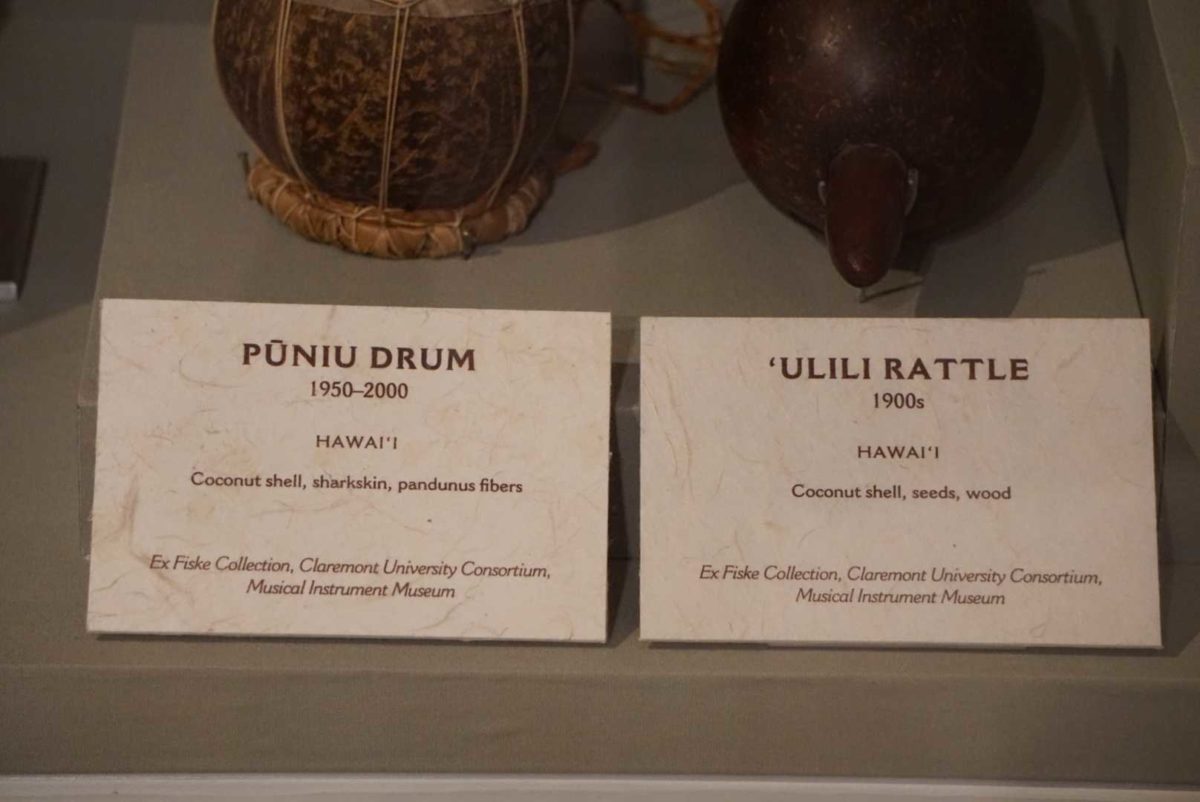 PŪNIU DRUM
1950–2000
HAWAI‘I
Coconut shell, sharkskin, pandunus fibers
Ex Fiske Collection, Claremont University Consortium,
Musical Instrument Museum
‘ULILI RATTLE
1900s
HAWAI‘I
Coconut shell, seeds, wood
Ex Fiske Collection, Claremont University Consortium,
Musical Instrument Museum